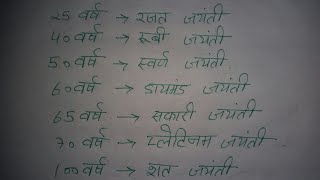 25 वर्ष → रजत जयंती
40 वर्ष → रूबी जयंती
50 वर्ष → स्वर्ण जयंती
60 वर्ष → डायमंड जयंती
65 वर्ष → सकारी जयंती
70 वर्ष → प्लेटिनम जयंती
100 वर्ष → शत जयंती